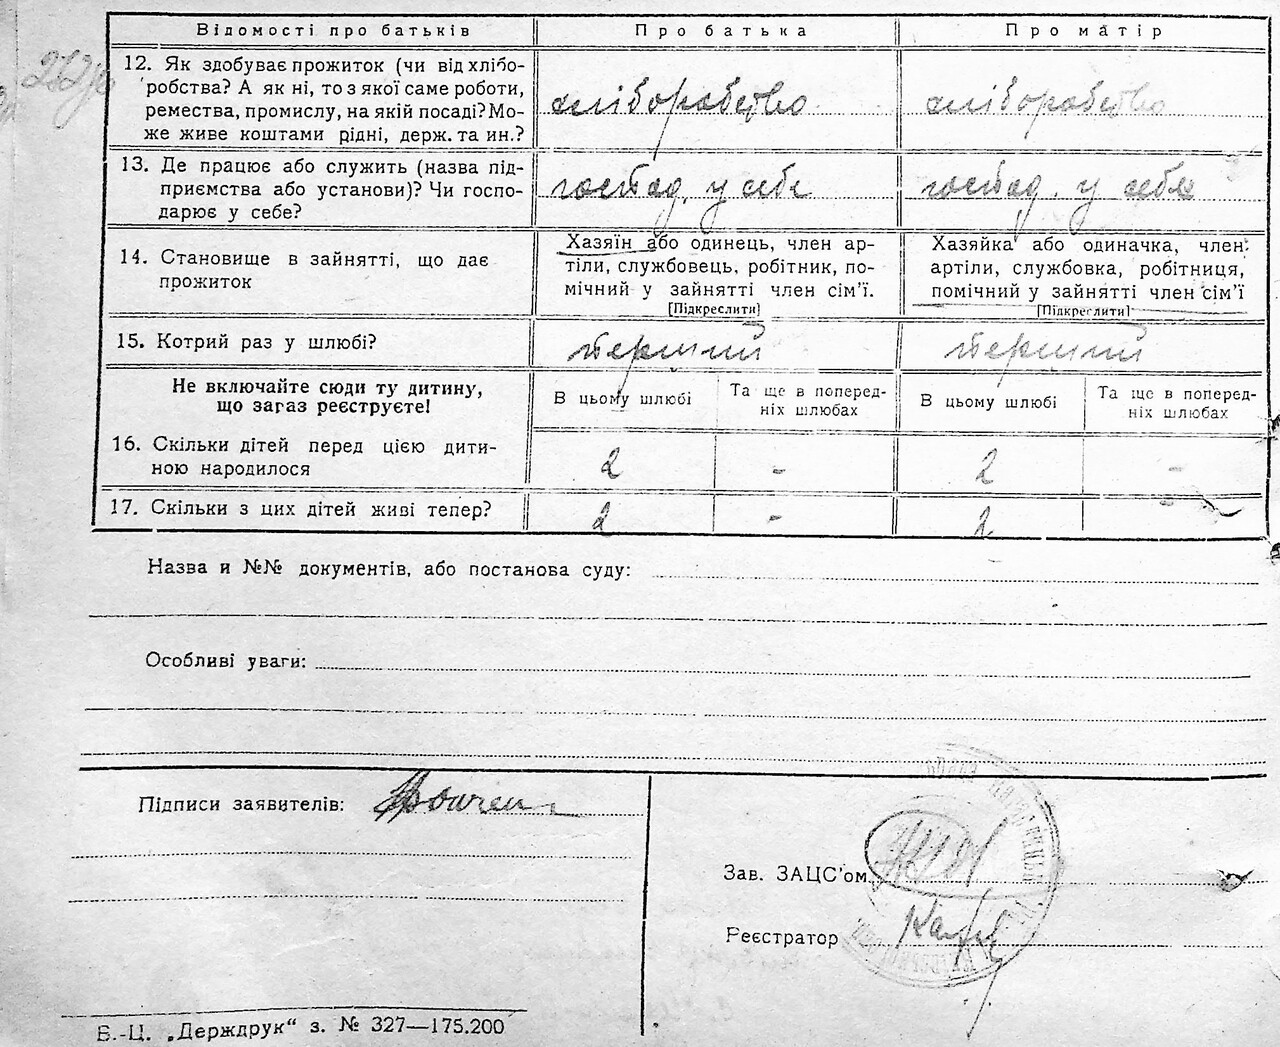 Відомості про батьків
Про батька
Про матір
12. Як здобуває прожиток (чи від хлібо-
робства? А як ні, то з якої саме роботи,
ремества, промислу, на якій посаді? Мо-
же живе коштами рідні, держ. та ин.?
хліборобство
хліборобство
13. Де працює або служить (назва під-
приємства або установи)? Чи госпо-
дарює у себе?
господ. у себе
господ. у себе
14. Становище в зайнятті, що дає
прожиток
Хазяїн або одинець, член ар-
тіли, службовець, робітник, по-
мічний у зайнятті член сім'ї.
[Підкреслити]
Хазяйка або одиначка, член
артіли, службовка, робітниця,
помічний у зайнятті член сім'ї
[Підкреслити]
15. Котрий раз у шлюбі?
перший
перший
Не включайте сюди ту дитину,
що зараз реєструєте!
В цьому шлюбі
Та ще в поперед-
ніх шлюбах
В цьому шлюбі
Та ще в поперед-
ніх шлюбах
16. Скільки дітей перед цією дити-
ною народилося
2
-
2
-
17. Скільки з цих дітей живі тепер?
2
-
2
-
Назва и №№ документів, або постанова суду:
Особливі уваги:
Підписи заявителів:
Зав. ЗАЦС'ом
Реєстратор
Б.-Ц. „Держдрук“ з. № 327—175.200